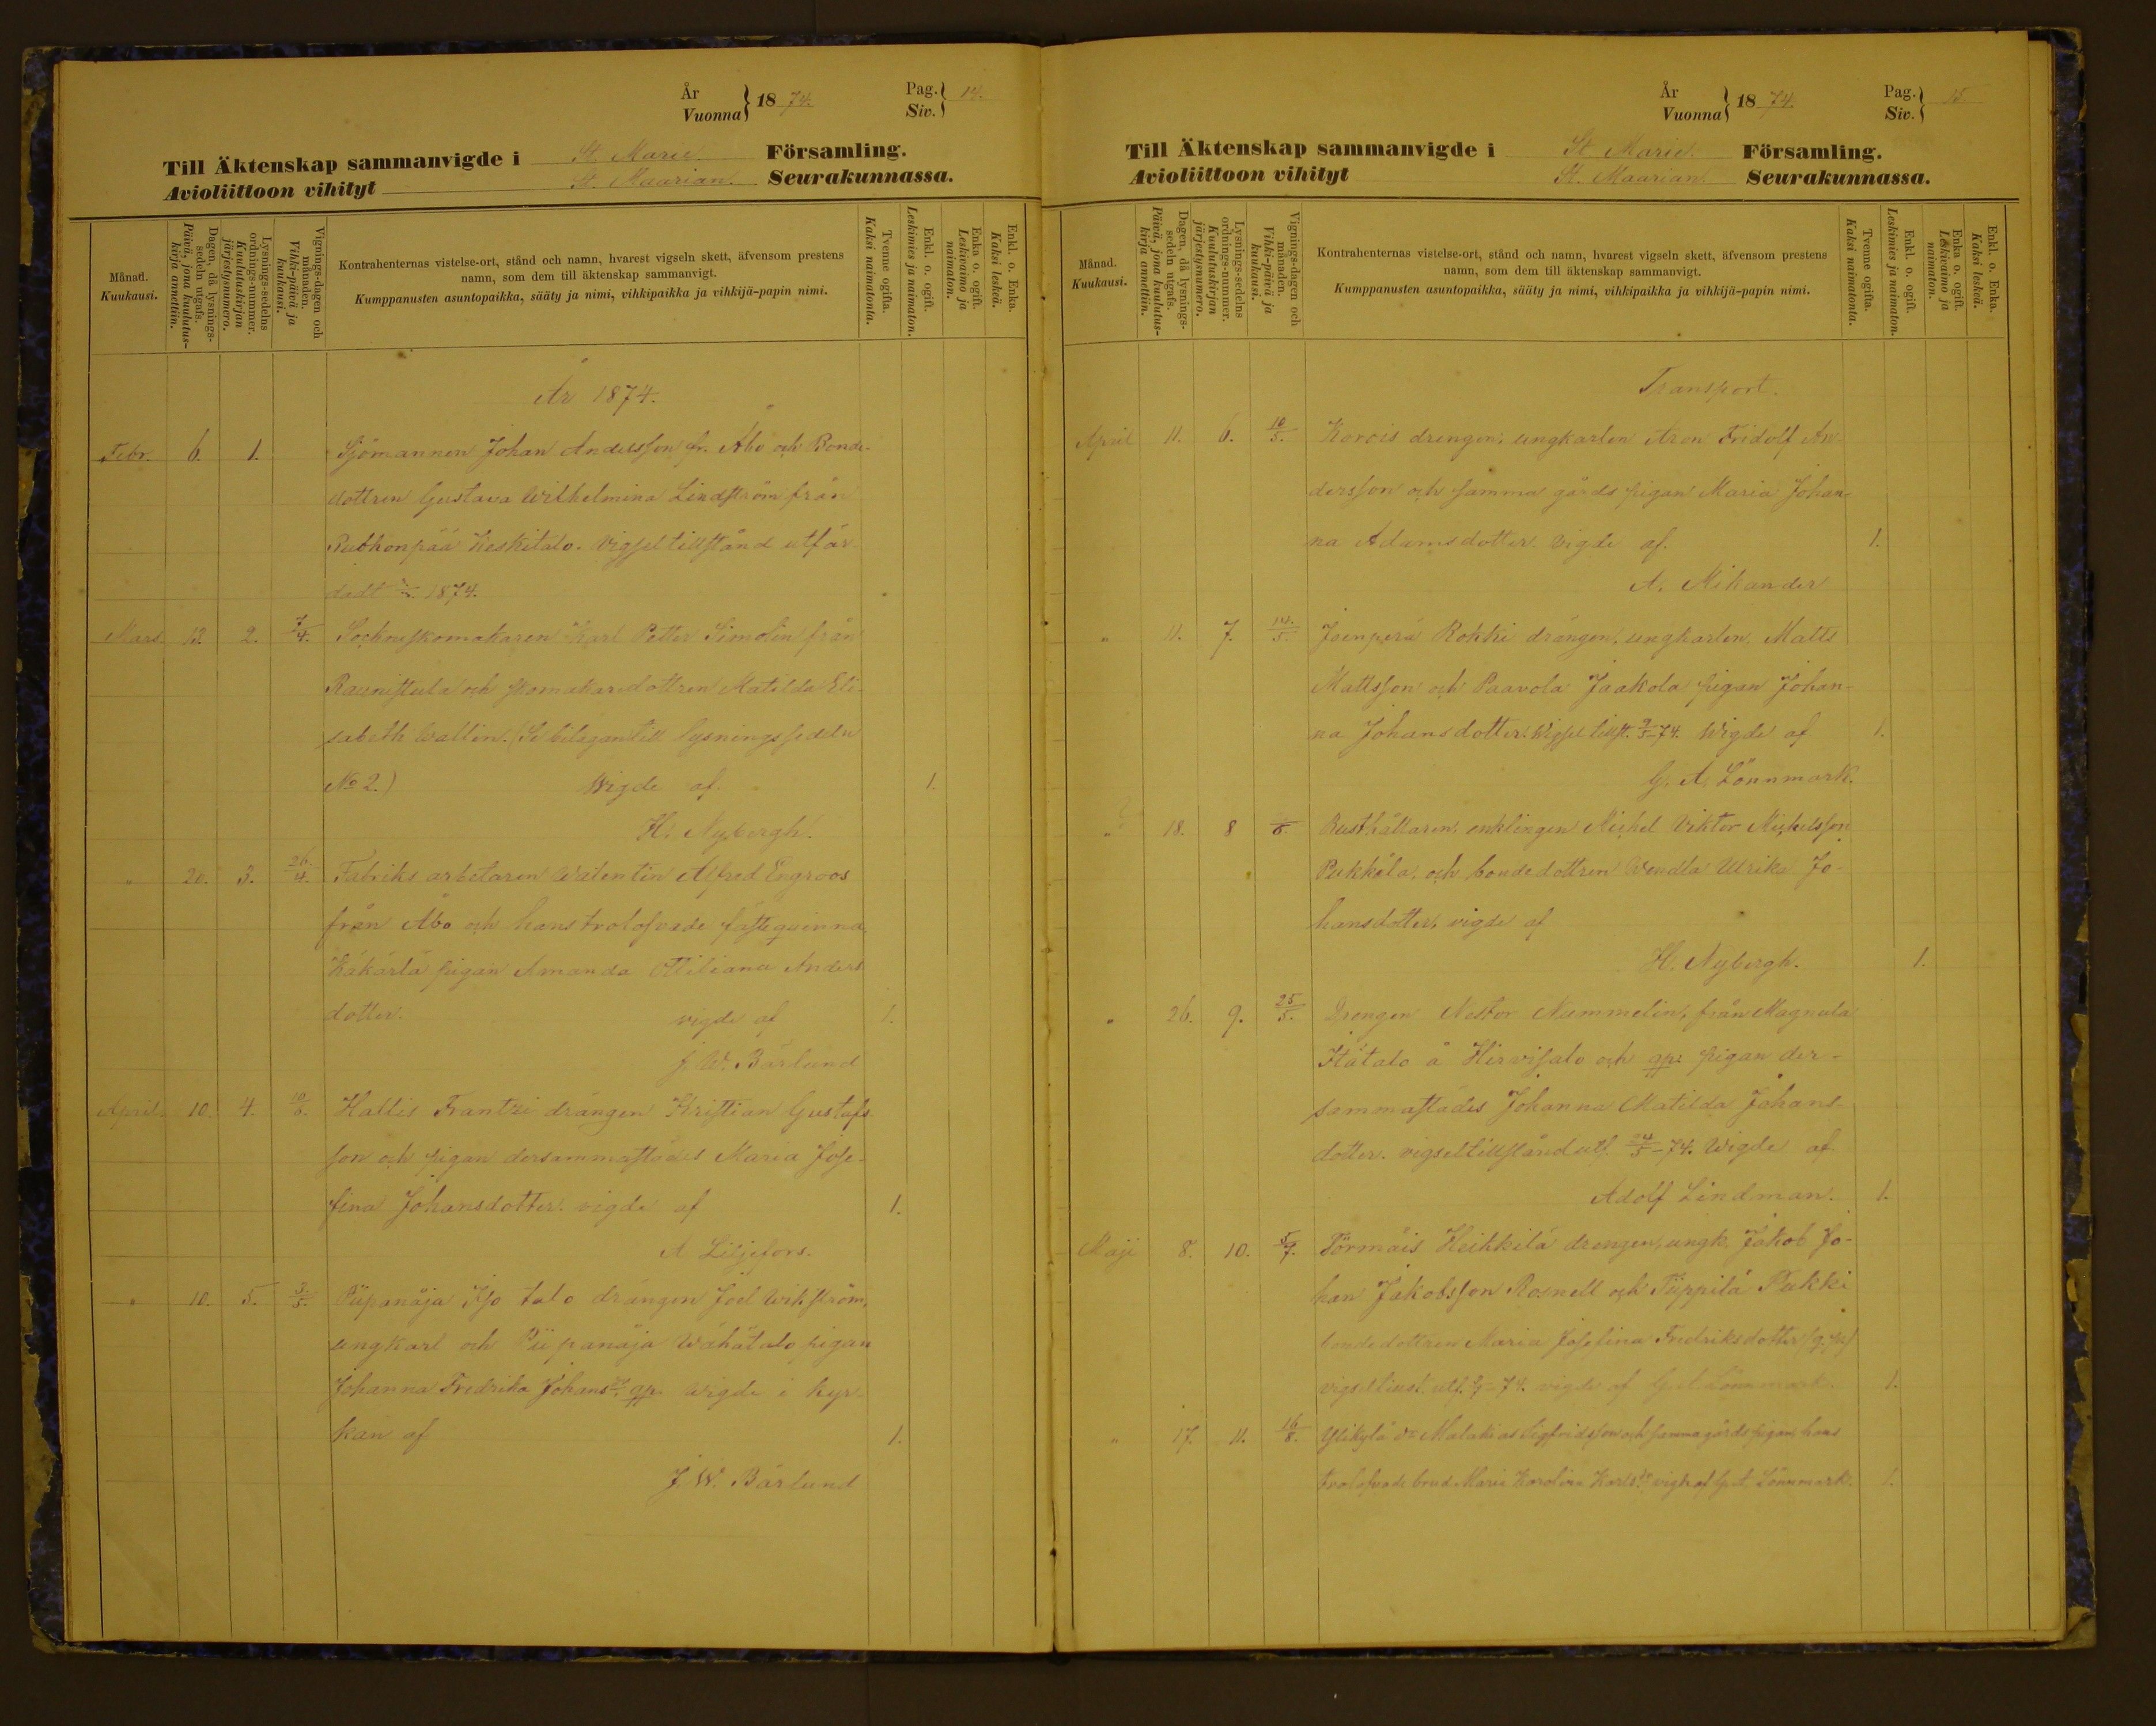 År
Vuonna } 1874. Pag.
Siv. } 14.
Till Äktenskap sammanvigde i St. Marie Församling.
Avioliittoon vihityt St. Maarian Seurakunnassa.
Månad.
Kuukausi.
Dagen, då lysnings-
sedeln utgafs.
Päivä, jona kuulutus-
kirja annettiin.
Lysnings-sedelns
ordnings-nummer.
Kuulutuskirjan
järjestysnumero.
Vignings-dagen och
månaden.
Vihki-päivä ja
kuukausi.
Kontrahenternas vistelse-ort, stånd och namn, hvarest vigseln skett, äfvensom prestens
namn, som dem till äktenskap sammanvigt.
Kumppanusten asuntopaikka, sääty ja nimi, vihkipaikka ja vihkijä-papin nimi.
Tvenne ogifta.
Kaksi naimatonta.
Enkl. o. ogift.
Leskimies ja naimaton.
Enka o. ogift.
Leskivaimo ja
naimaton.
Enkl. o. Enka.
Kaksi leskeä.
År 1874.
Febr. 6. 1. Sjömannen Johan Andersson fr. Åbo och Bonde-
dottren Gustava Wilhelmina Lindström från
Ruohonpää Keskitalo. Vigseltillstånd utfär-
dadt 1874.
Mars. 13. 2. 7/4. Sockenskomakaren Karl Petter Simolin från
Raunistula och skomakaredottren Matilda Eli-
sabeth Wallin. (Se bilagan till lysningssedeln
No 2.) Wigde af. 1.
H. Nybergh.
" 20. 3. 26/4. Fabriks arbetaren Walentin Alfred Engroos
från Åbo och hans trolofvade fästeqvinna
Käkärlä pigan Amanda Otiliana Anders
dotter. vigde af 1.
J. W. Bärlund
April. 10. 4. 10/5. Kallis Frantzi drängen Kristian Gustafs
son och pigan dersammastädes Maria Jose-
fina Johansdotter. vigde af 1.
A Liljefors.
" 10. 5. 3/5. Piipanoja Iso talo drängen Joel Wikström,
ungkarl och Piipanoja Wähätalo pigan
Johanna Fredrika Johansdr, qp. Wigde i kyr-
kan af 1.
J. W. Bärlund
År
Vuonna } 1874. Pag.
Siv. } 15
Till Äktenskap sammanvigde i St. Marie Församling.
Avioliittoon vihityt St. Maarian Seurakunnassa.
Månad.
Kuukausi.
Dagen, då lysnings-
sedeln utgafs.
Päivä, jona kuulutus-
kirja annettiin.
Lysnings-sedelns
ordnings-nummer.
Kuulutuskirjan
järjestysnumero.
Vignings-dagen och
månaden.
Vihki-päivä ja
kuukausi.
Kontrahenternas vistelse-ort, stånd och namn, hvarest vigseln skett, äfvensom prestens
namn, som dem till äktenskap sammanvigt.
Kumppanusten asuntopaikka, sääty ja nimi, vihkipaikka ja vihkijä-papin nimi.
Tvenne ogifta.
Kaksi naimatonta.
Enkl. o. ogift.
Leskimies ja naimaton.
Enka o. ogift.
Leskivaimo ja
naimaton.
Enkl. o. Enka.
Kaksi leskeä.
Transport.
April 11. 6. 10/5. Korois drengen, ungkarlen Aron Fridolf An-
dersson och samma gårds pigan Maria Johan-
na Adamsdotter. Vigde af. 1.
A. Mikander
" 11. 7. 14./5. Jäenperä Rokki drängen, ungkarlen Matts
Mattsson och Paavola Jaakola pigan Johan-
na Johansdotter. Wigsel tillst. 9/5-74. Wigde af 1.
G. A. Lönnmark.
" 18. 8 Rusthållaren, enklingen Michel Viktor Michelsson
Pukkila, och bondedottren Wendla Ulrika Jo-
hansdotter, vigde af
H. Nybergh. 1.
" 26. 9. 25/5. Drengen Nestor Nummelin, från Magnula
Itätalo å Hirvisalo och qp. pigan der-
sammastädes Johanna Matilda Johans-
dotter. vigseltillstånd utf. 24/5-74. Wigde af
Adolf Lindman. 1.
Maji 8. 10. 5/7. Törmäis Heikkilä drengen, ungk. Jakob Jo-
han Jakobsson Rosnell och Piippilä Pukki
bondedottren Maria Josefina Fredriksdotter (q.p.)
vigseltillst. utf. -74. vigde af G. A. Lönnmark. 1.
" 17. 11. 16/8. Ylikylä Malakias Sigfridsson och samma gårds pigan, hans
trolofvade brud Maria Karolina Karlsdr. vigde af G. A. Lönnmark. 1.